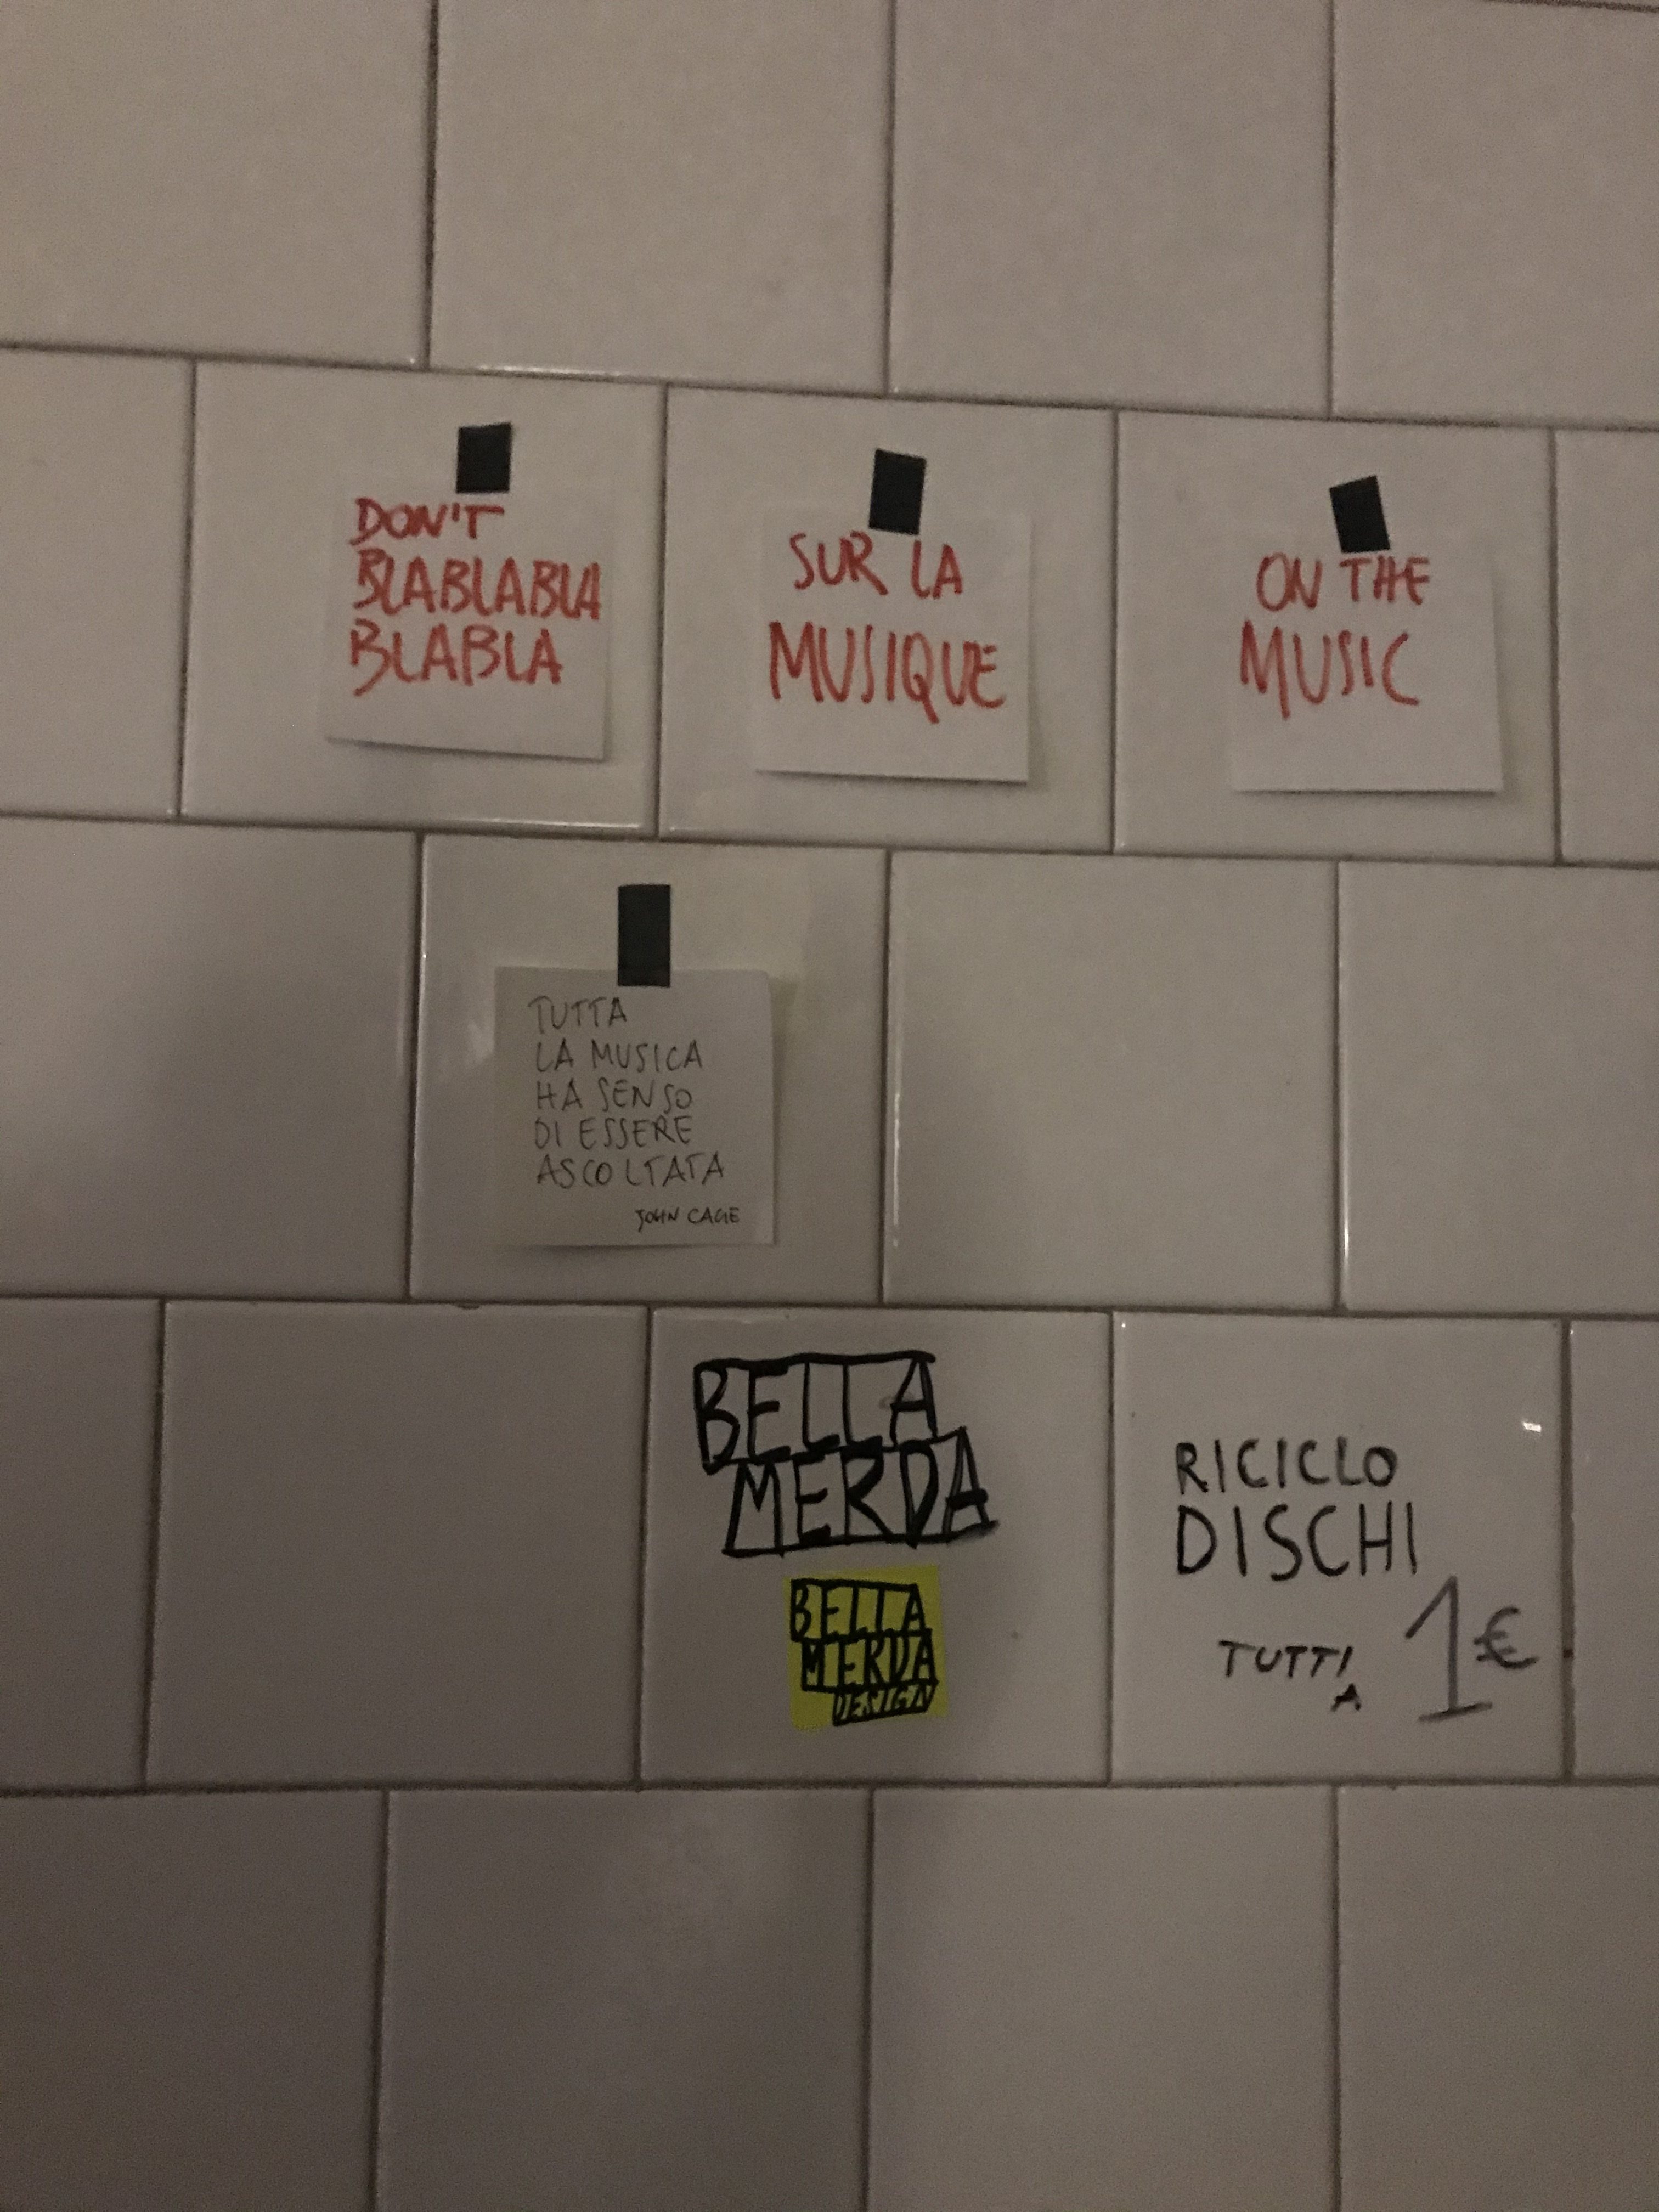 DON'T
BLABLABLA
BLABLA
SUR LA
MUSIQUE
ON THE
MUSIC
TUTTA
LA MUSICA
HA SENSO
DI ESSERE
ASCOLTATA
JOHN CAGE
BELLA
MERDA
BELLA
MERDA
DESIGN
RICICLO
DISCHI
TUTTI
A 1€